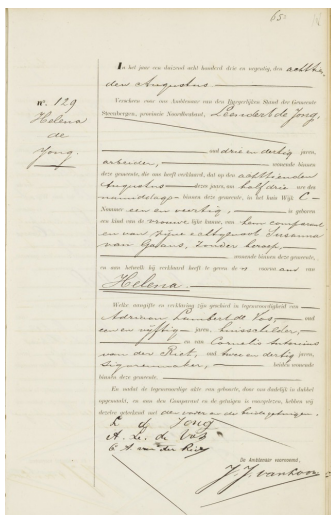 65
In het jaar een duizend acht honderd drie en negentig, den achttien
den Augustus
Verscheen voor ons Ambtenaar van den Burgerlijken Stand der Gemeente
Steenbergen, provincie Noordbrabant, Leendert de Jong,
No. 129
Helena
de
Jong.
oud drie en dertig jaren,
arbeider, wonende binnen
deze gemeente, die ons heeft verklaard, dat op den achttienden
Augustus dezes jaars, om half drie ure des
namiddags binnen deze gemeente, in het huis Wijk C
Nummer een en veertig, is geboren
een kind van de vrouwelijke kunne, van hem comparant
en van zijne echtgenoot Susanna
van Galens, zonder beroep,
wonende binnen deze gemeente,
en aan hetwelk hij verklaard heeft te geven de voornaam van
Helena.
Welke aangifte en verklaring zijn geschied in tegenwoordigheid van
Adriaan Lambert de Vos, oud
een en vijftig jaren, huisschilder,
en van Cornelis Antonius
van der Riet, oud twee en dertig jaren,
sigarenmaker, beiden wonende
binnen deze gemeente.
En omdat de tegenwoordige akte van geboorte, door ons dadelijk in dubbel
opgemaakt, en aan den Comparant en de getuigen is voorgelezen, hebben wij
dezelve geteekend met den vader en de beide getuigen.
L de Jong
A. L. de Vos
C A van der Riet
De Ambtenaar voornoemd,